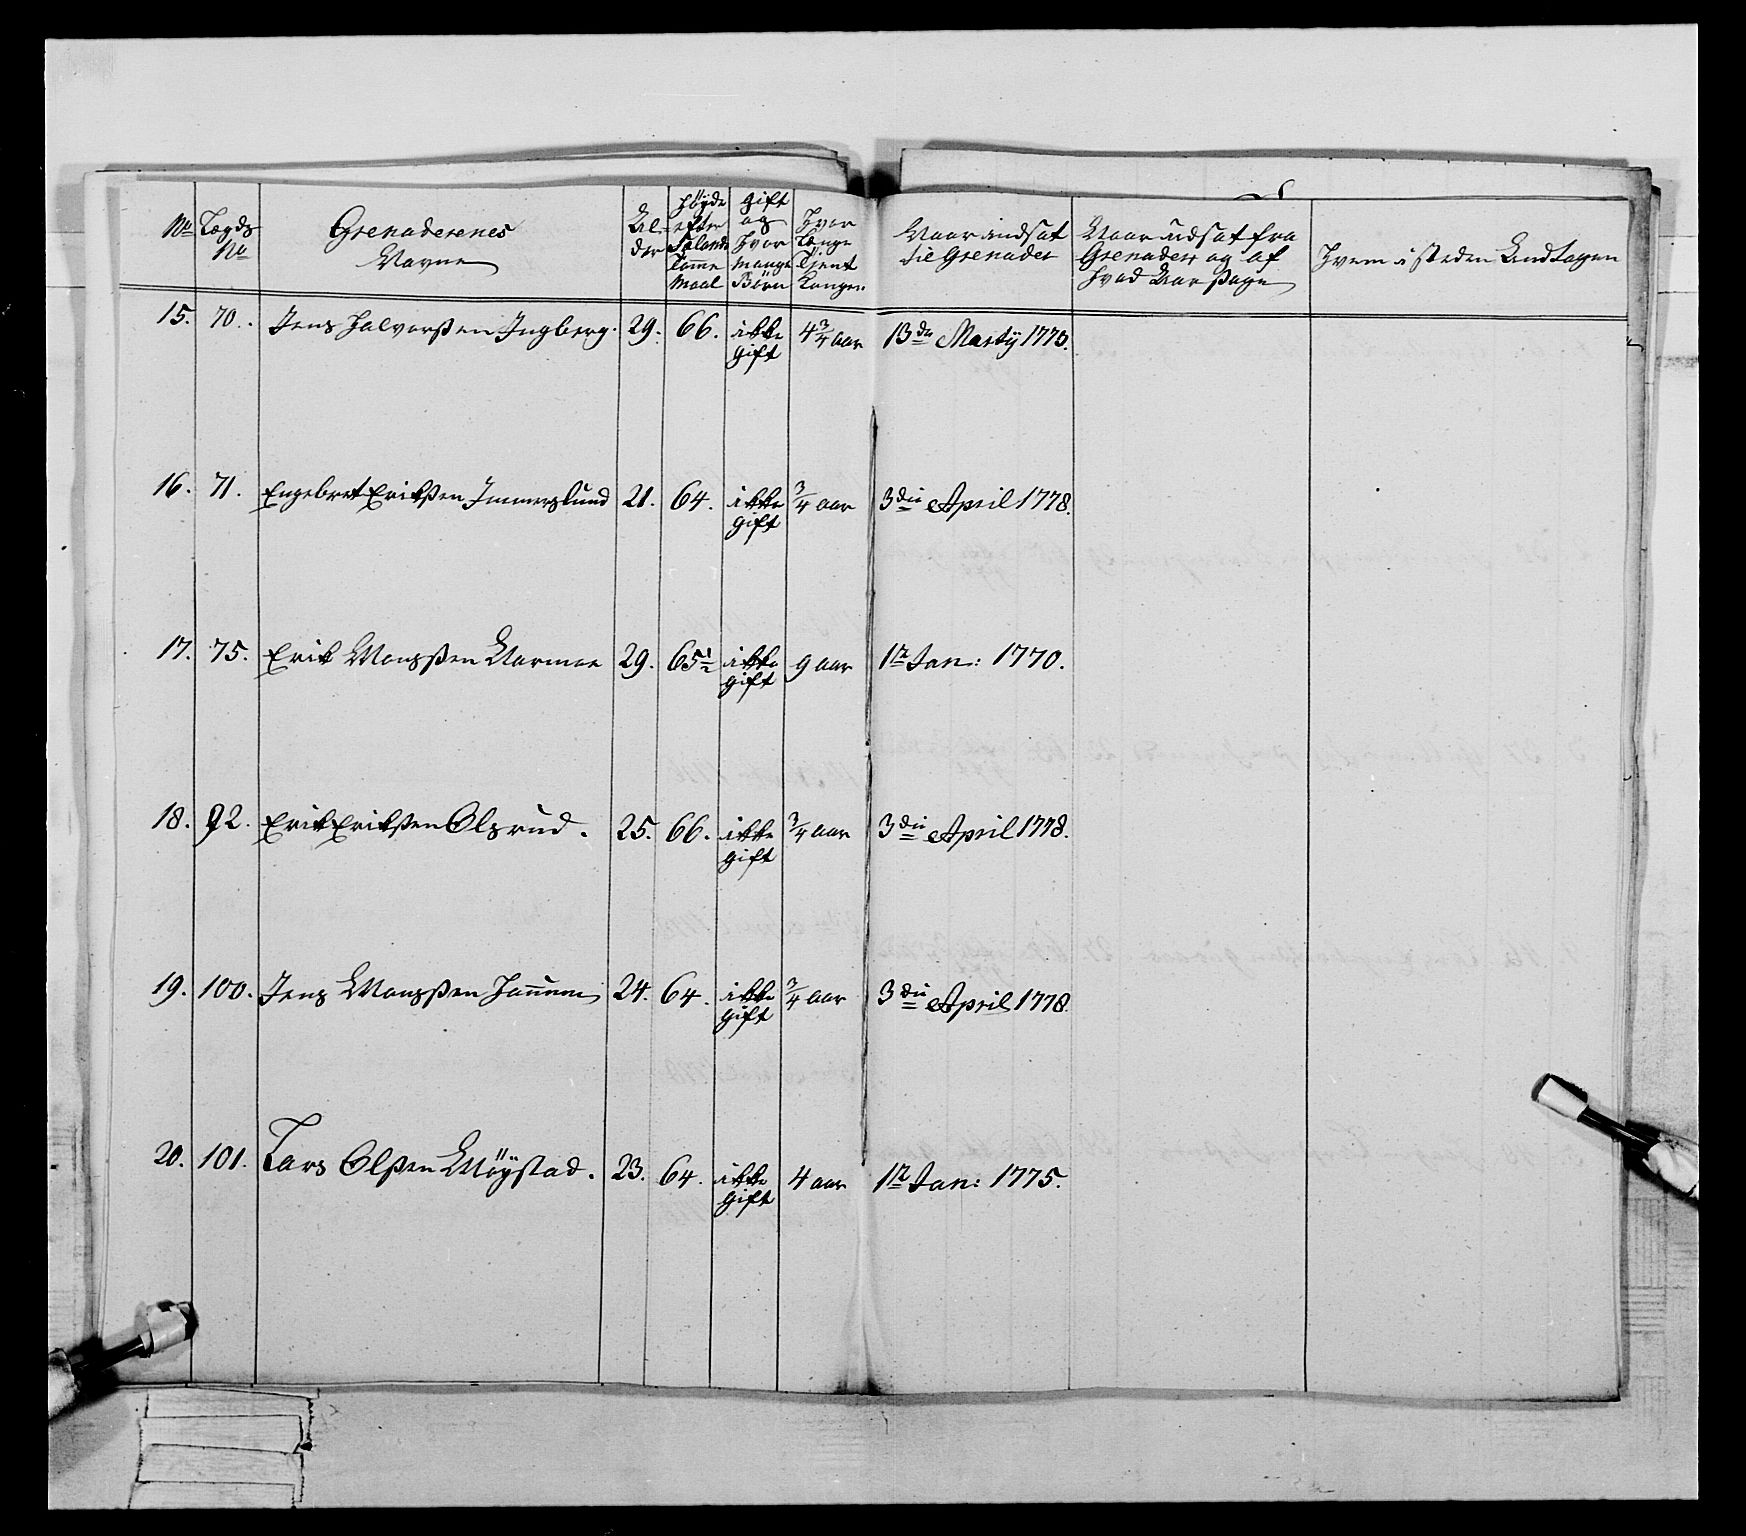 No Lægds No
Grenaderenes Navne
Alder
Høyde efter Sælands Tomme Maal
gift og hvor mange Børn
Hvor Længe Tient Kongen
Naar indsat til Grenader
Naar udsat fra Grenader og af hvad Aarsage
Hvem i steden Andtagen
15. 70. Jens Halvorsen Ingberg. 29. 66. ikke gift 4 3/4 aar 13de Martij 1775.
16. 71. Engebret Eriksen Immerslund 21. 64. ikke gift 3/4 aar 3die April 1778.
17. 75. Erik Monsen 29. 65 1/2 ikke gift 9 aar 1te Jan: 1770.
18. 92. Erik Eriksen Olsrud. 25. 66. ikke gift 3/4 aar 3die April 1778.
19. 100. Jens Monsen 24. 64. ikke gift 3/4 aar 3die April 1778.
20. 101. Lars Olsen Møystad. 23. 64. ikke gift 4 aar 1te Jan: 1775.